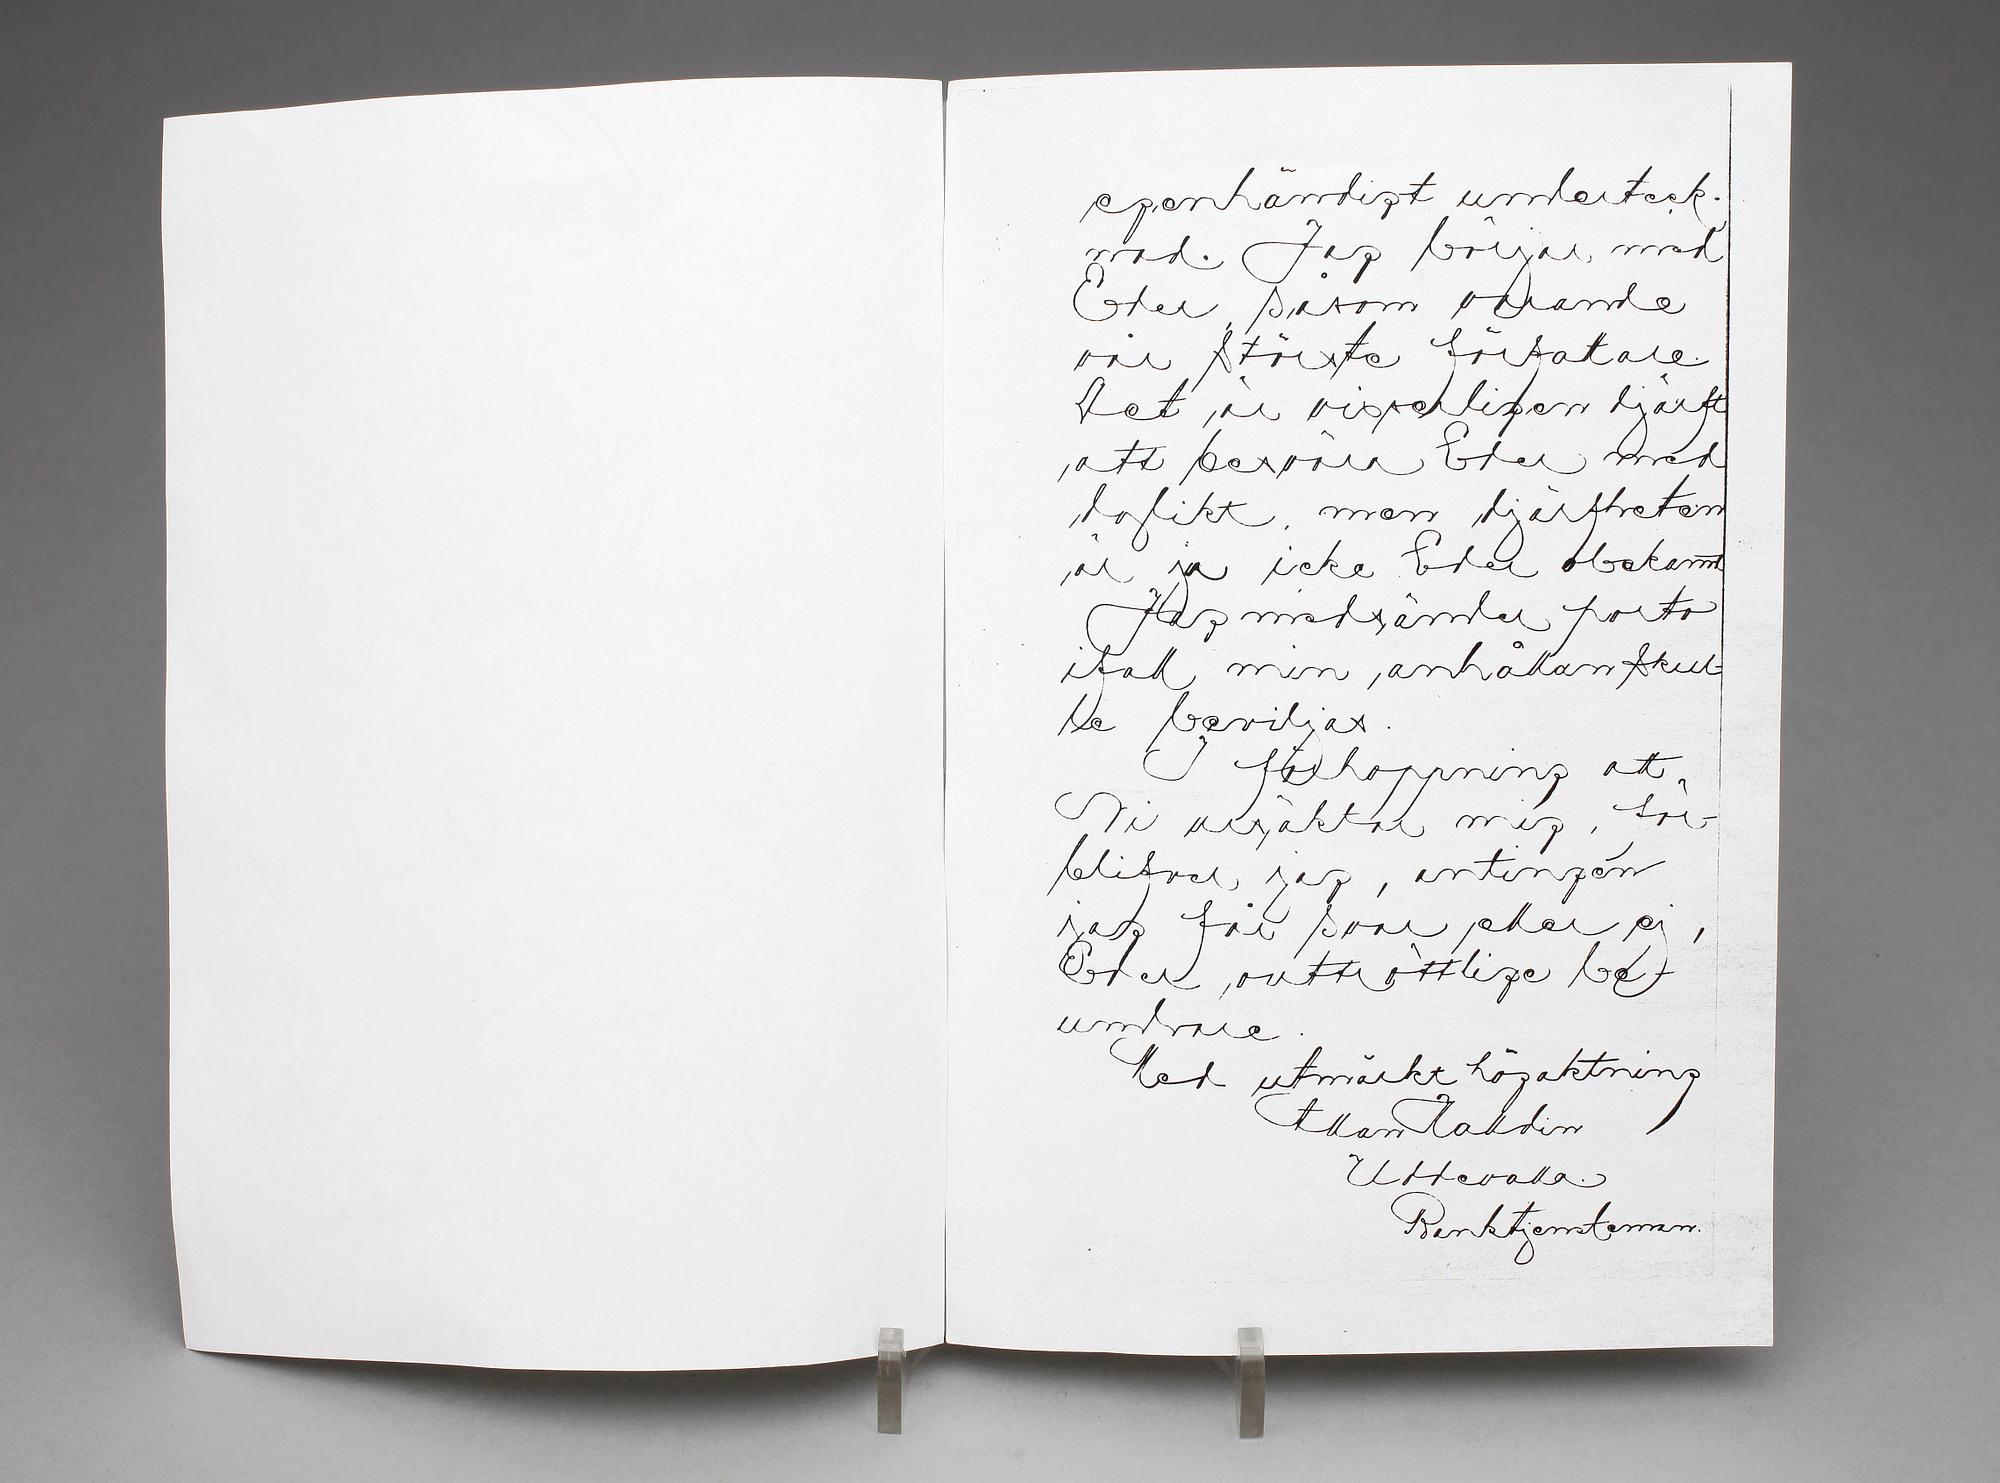 egenhändigt underteck-
nad. Jag börjar med
Eder, såsom varande
vår störste författare.
Det är visserligen djärft
att besvära Eder med
dylikt, men djärfheten
är ja icke Eder obekant
Jag medsänder porto
ifall min anhållan skul-
le beviljas.
I förhoppning att
Ni ursäktar mig, för-
blifver jag, antingen
jag får svar eller ej,
Eder outtröttlige be-
undrare.
Med utmärkt högaktning
Allan Walldin
Uddevalla.
Banktjensteman.